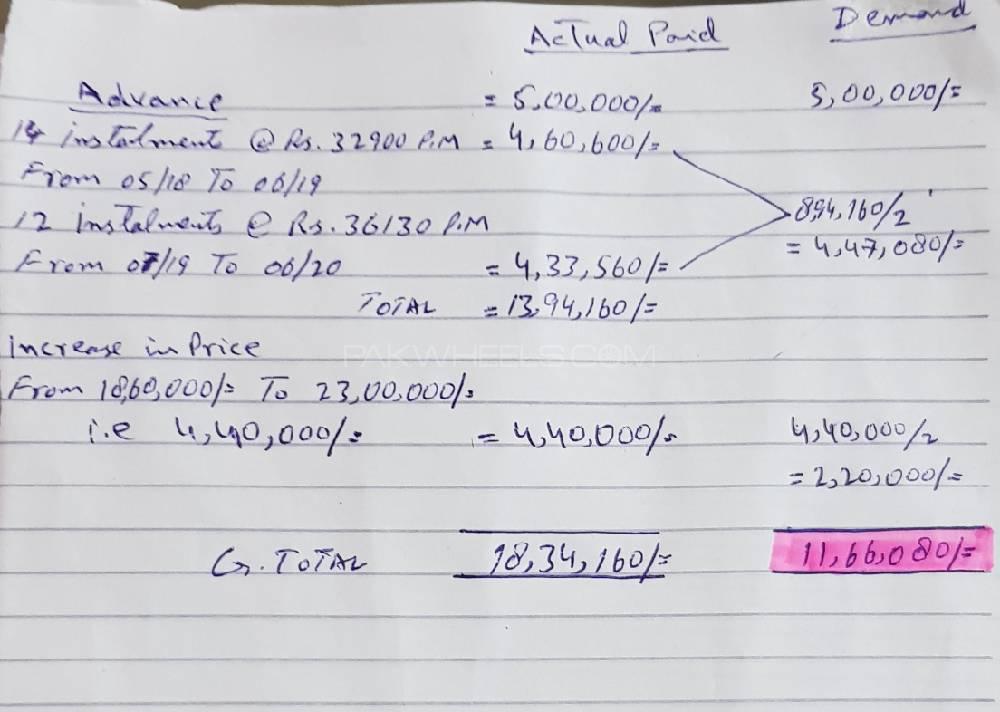 Actual Paid Demand
Advance = 5,00,000/= 5,00,000/=
14 instalment @ Rs. 32900 P.M = 4,60,600/=
From 05/18 To 06/19
12 Instalments @ Rs. 36130 P.M 894,160/2
From 07/19 To 06/20 = 4,33,560/= = 4,47,080/=
TOTAL = 13,94,160/=
increase in Price
PAKWHEELS.COM
From 18,60,000/= To 23,00,000/=
i.e 4,40,000/= = 4,40,000/= 4,40,000/2
= 2,20,000/=
G. TOTAL 18,34,160/= 11,66,080/=